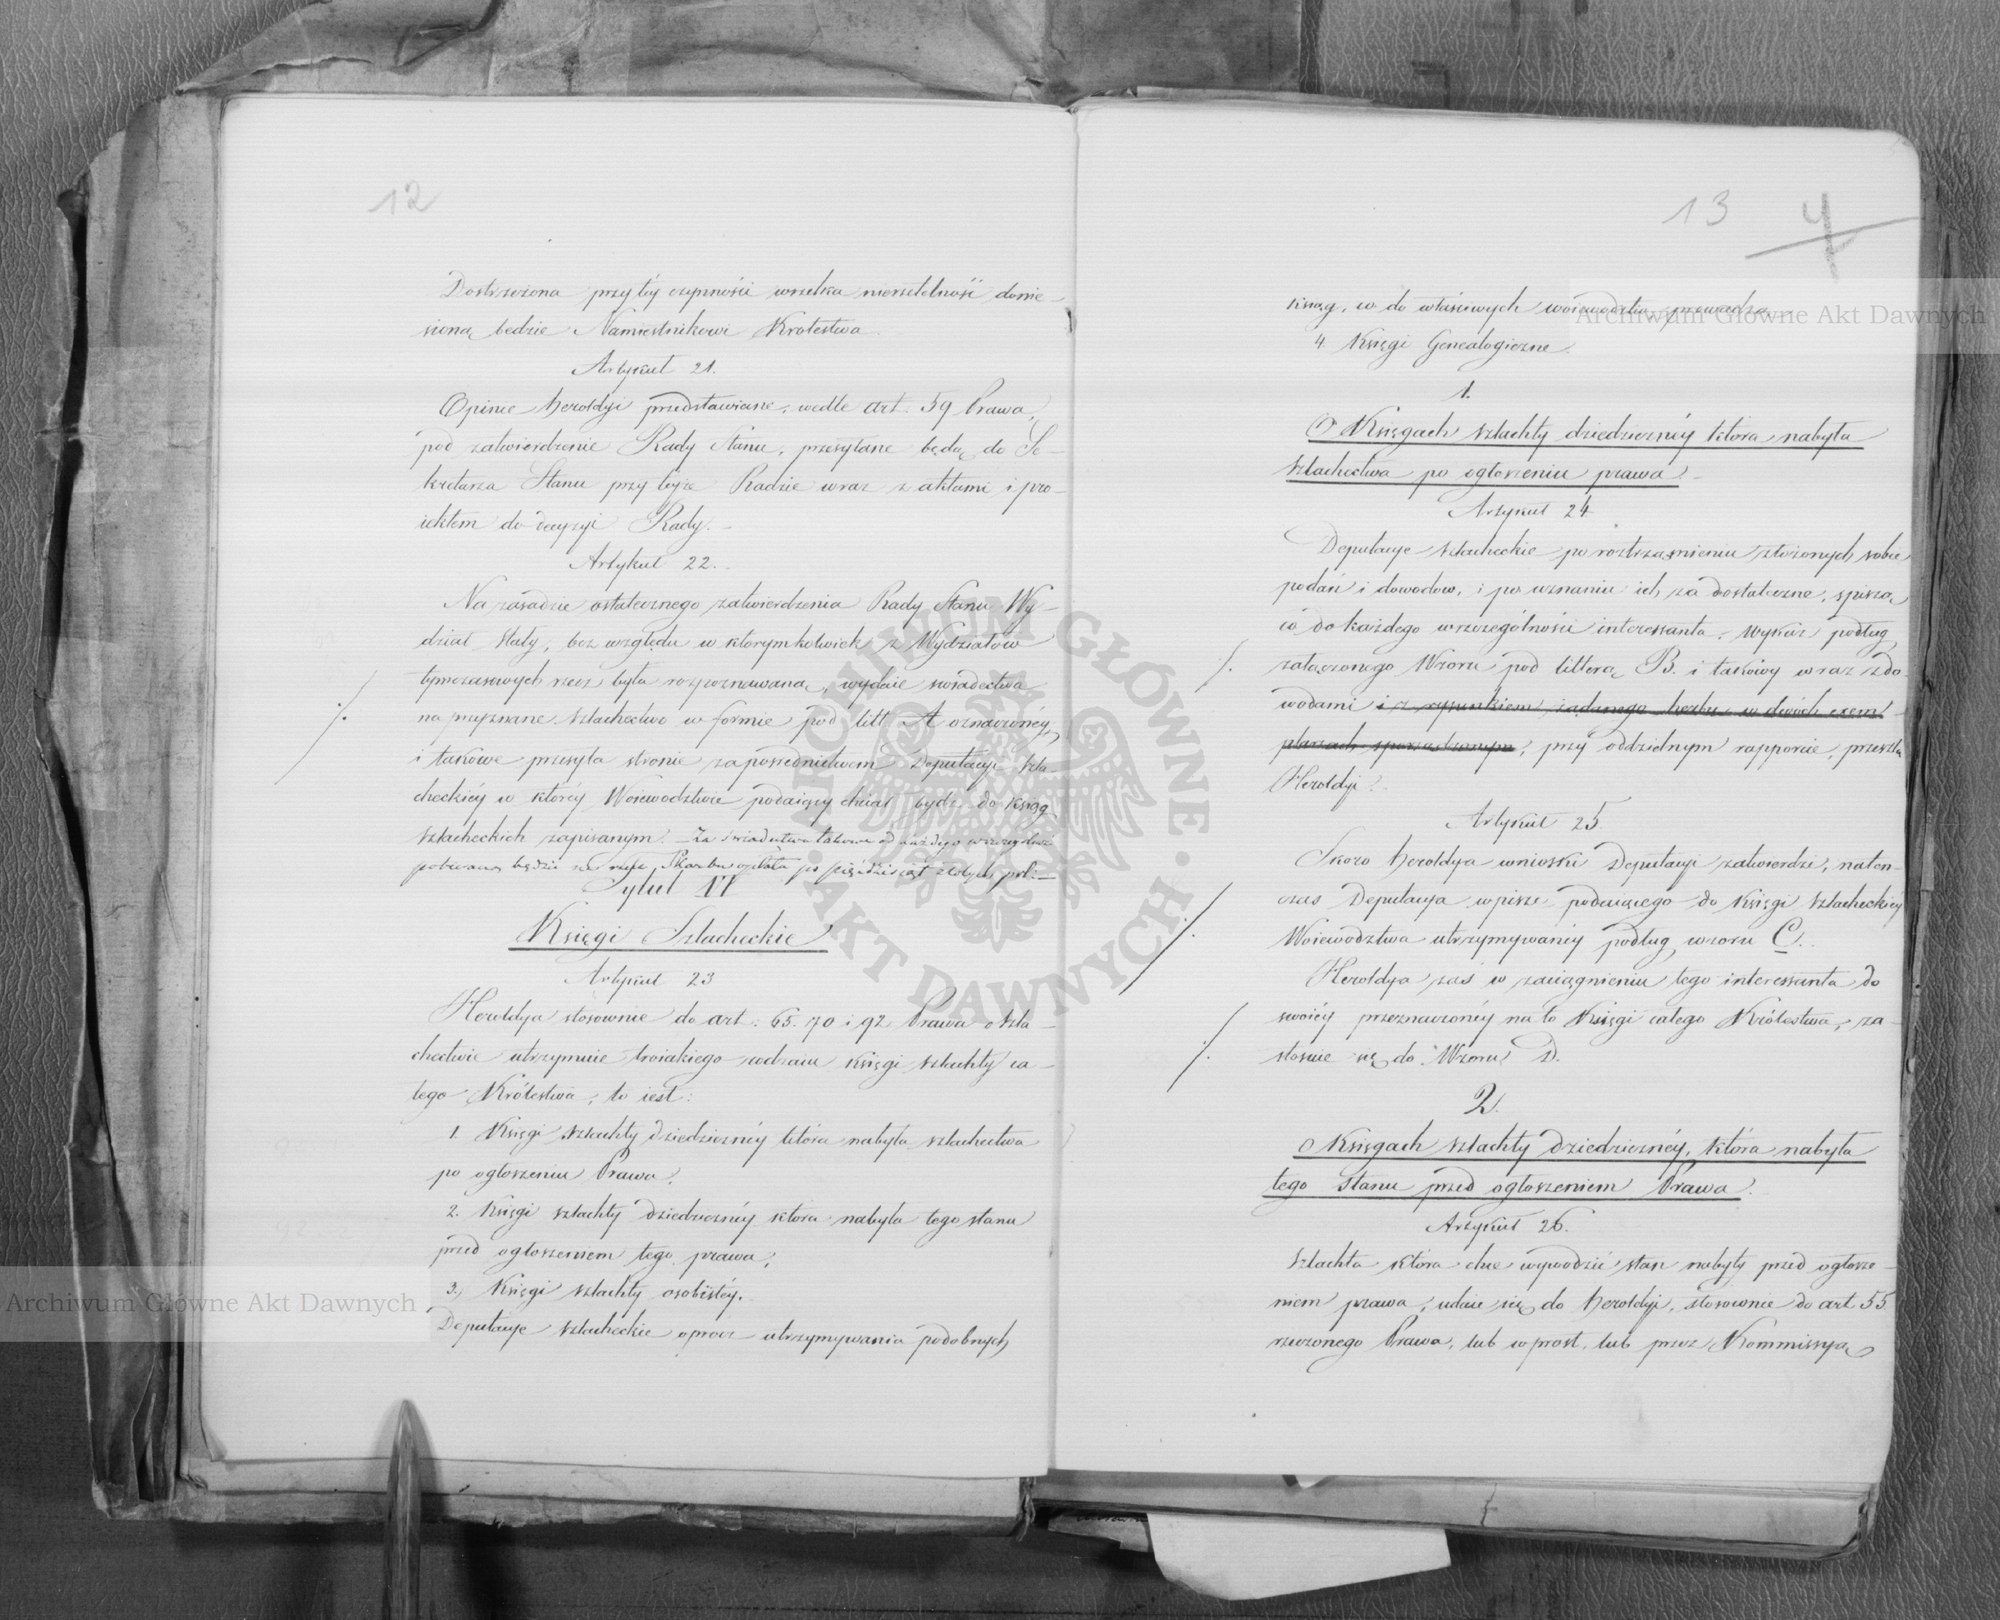 12
Dostrzeżona przy téy czynności wszelka nierzetelność donie-
sioną będzie Namiestnikowi Królestwa.
Artykuł 21.
Opinie heroldyi przedstawiane, wedle art. 59 Prawa,
pod zatwierdzenie Rady Stanu, przesyłane będą do Se-
kretarza Stanu przy teyże Radzie wraz z aktami i pro-
iektem do decyzyi Rady.
Artykuł 22.
Na zasadzie ostatecznego zatwierdzenia Rady Stanu Wy-
dział stały, bez względu w którymkolwiek z Wydziałów
tymczasowych rzecz była rozpoznawaną, wydaie świadectwa
na przyznane szlachectwo w formie pod litt. A oznaczonéy,
i takowe przesyła stronie za pośrednictwem Deputacyi szla-
checkiéy w któréy Woiewodztwie podaiący chciał bydź do ksiąg
szlacheckich zapisanym. Za świadectwa takowe od każdego w szczególności
pobierana będzie na rzecz Skarbu opłata po pięćdziesiąt złotych pol:
Tytuł VI
Księgi Szlacheckie
Artykuł 23
Heroldya stosownie do art: 65. 70 i 92 Prawa o szla-
chectwie utrzymuie troiakiego rodzaiu księgi szlachty ca-
łego Królestwa, to iest:
1. Księgi szlachty dziedzicznéy która nabyła szlachectwa
po ogłoszeniu Prawa.
2. Księgi szlachty dziedzicznéy która nabyła tego stanu
przed ogłoszeniem tego prawa;
3. Księgi szlachty osobistéy.
Deputacye szlacheckie oprócz utrzymywania podobnych
13 4
ksiąg, co do właściwych woiewodztw prowadzą
4 Księgi Genealogiczne.
1.
O Księgach szlachty dziedzicznéy która nabyła
szlachectwa po ogłoszeniu prawa.
Artykuł 24
Deputacye szlacheckie po roztrząśnieniu złożonych sobie
podań i dowodów, i po uznaniu ich za dostateczne, spiszą
co do każdego w szczególności interessanta, wykaz podług
załączonego Wzoru pod litterą B. i takowy wraz z do-
wodami i z rysunkiem żądanego herbu w dwóch exem-
plarzach sporządzonym, przy oddzielnym rapporcie, prześlą
Heroldyi.
Artykuł 25.
Skoro heroldya wnioski Deputacyi zatwierdzi, naten-
czas Deputacya wpisze podaiącego do Księgi szlacheckiéy
Woiewództwa utrzymywanéy podług wzoru C.
Heroldya zaś w zaciągnieniu tego interessanta do
swoiéy przeznaczonéy na to Księgi całego Królestwa, za-
stosuie się do Wzoru D.
2.
O Księgach szlachty dziedzicznéy, która nabyła
tego Stanu przed ogłoszeniem Prawa.
Artykuł 26.
Szlachta która chce wywodzić stan nabyty przed ogłosze-
niem prawa, udaie się do heroldyi, stosownie do art. 55
rzeczonego Prawa, lub wprost, lub przez Kommissyą
Archiwum Główne Akt Dawnych
Archiwum Główne Akt Dawnych
ARCHIWUM GŁÓWNE · AKT DAWNYCH ·